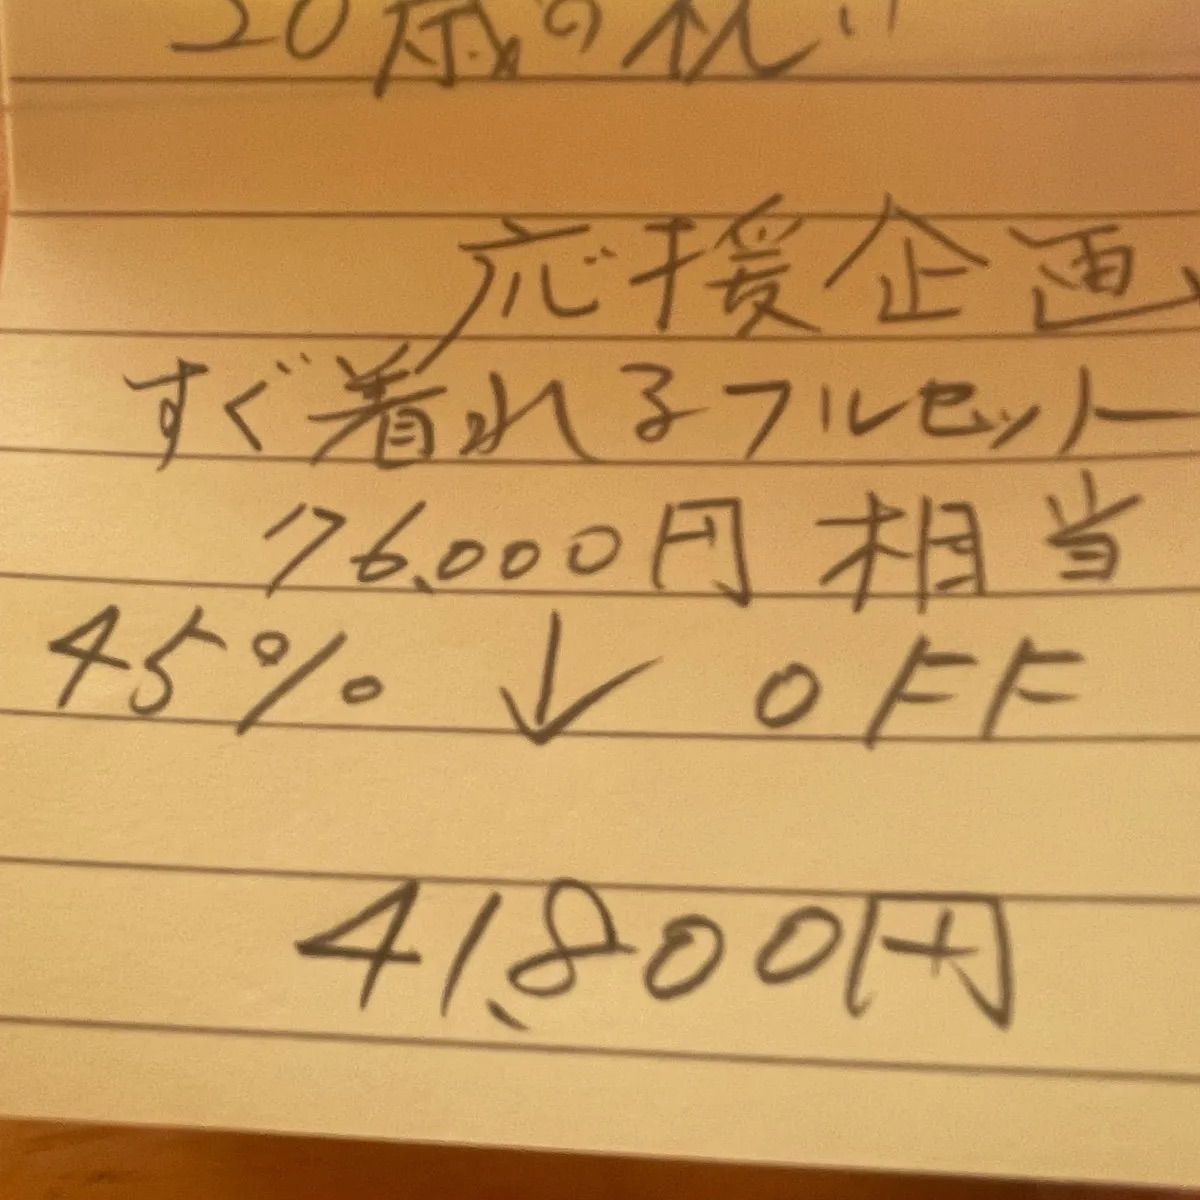 20歳の祝!!
応援企画
すぐ着れるフルセット
76,000円相当
45% ↓ OFF
41,800円